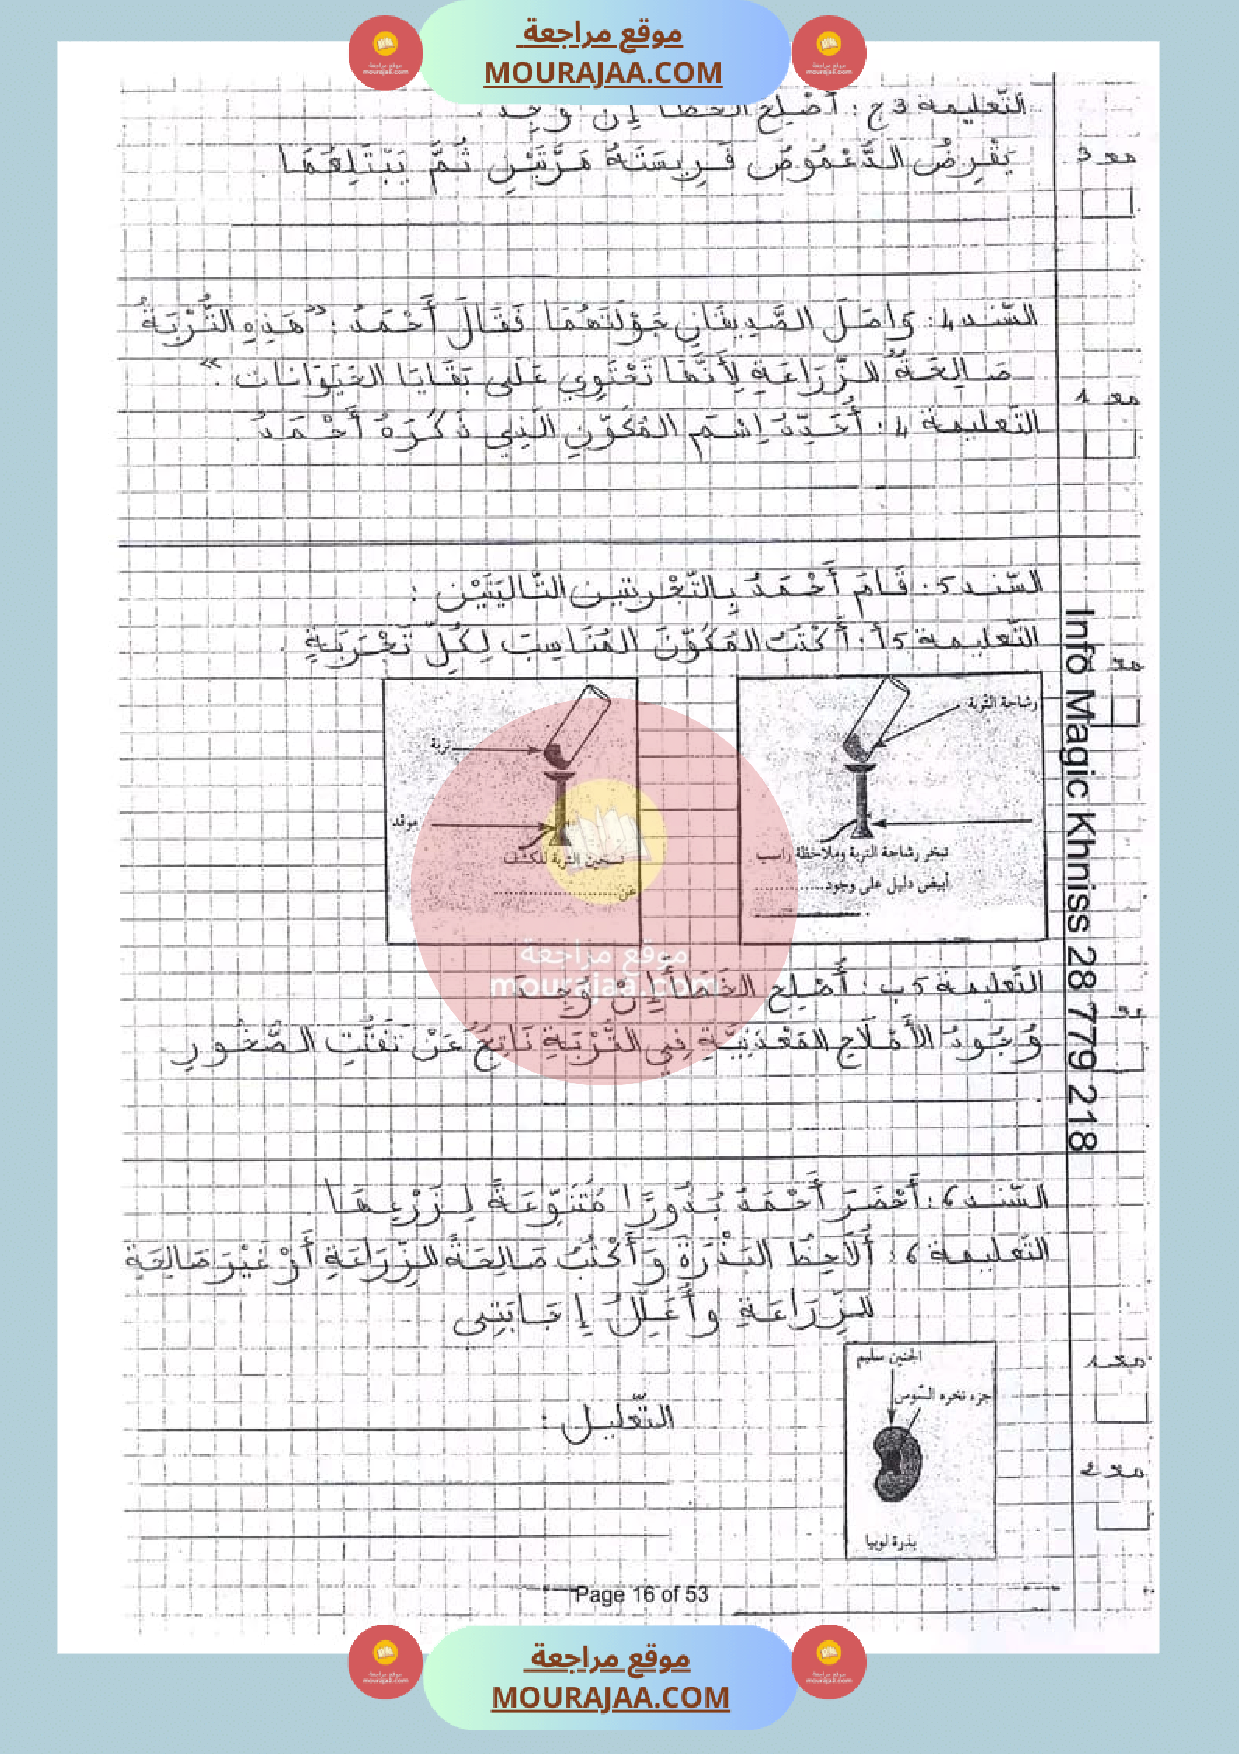 موقع مراجعة
MOURAJAA.COM
التّعليمة 3ج : أُصْلِحُ الخَطَأَ إِنْ وُجِدَ .
يَقْرِضُ الدُّعْمُوصُ فَرِيسَتَهُ مَرَّتَيْنِ ثُمَّ يَبْتَلِعُهَا
مع3
السّند4: وَاصَلَ الصَّدِيقَانِ جَوْلَتَهُمَا فَقَالَ أَحْمَدُ : "هَذِهِ التُّرْبَةُ
صَالِحَةٌ للزِّرَاعَةِ لِأَنَّهَا تَحْتَوِي عَلَى بَقَايَا الحَيَوَانَات ."
مع 1
التّعليمة 4: أُحَدِّدُ اِسْمَ المُكَوِّنِ الَّذِي ذَكَرَهُ أَحْمَدُ .
السّند5: قَامَ أَحْمَدُ بِالتَّجْرِبَتَيْنِ التَّالِيَتَيْنِ :
التّعليمة 5أ: أَكْتُبُ المُكَوِّنَ المُنَاسِبَ لِكُلِّ تَجْرِبَةٍ .
رشاحة التربة
تبخر رشاحة التربة وملاحظة راسب
أبيض دليل على وجود..............
تربة
موقد
تسخين التربة للكشف
عن..........................
موقع مراجعة
mourajaa.com
التّعليمة 5ب : أُصْلِحُ الخَطَأَ إِنْ وُجِدَ
وُجُودُ الأَمْلَاحِ المَعْدِنِيَّةِ فِي التُّرْبَةِ نَاتِجٌ عَنْ تَفَتُّتِ الصُّخُورِ
Info Magic Khniss 28 779 218
السّند6: أَحْضَرَ أَحْمَدُ بُذُورًا مُتَنَوِّعَةً لِزَرْعِهَا
التّعليمة 6: أُلَاحِظُ البَذْرَةَ وَأَكْتُبُ صَالِحَةً للزِّرَاعَةِ أَوْ غَيْرَ صَالِحَةٍ
للزِّرَاعَةِ وأُعَلِّلُ إِجَابَتِي
الجنين سليم
جزء نخره السّوس
بذرة لوبيا
مع1
التّعليل :
مع2
Page 16 of 53
موقع مراجعة
MOURAJAA.COM